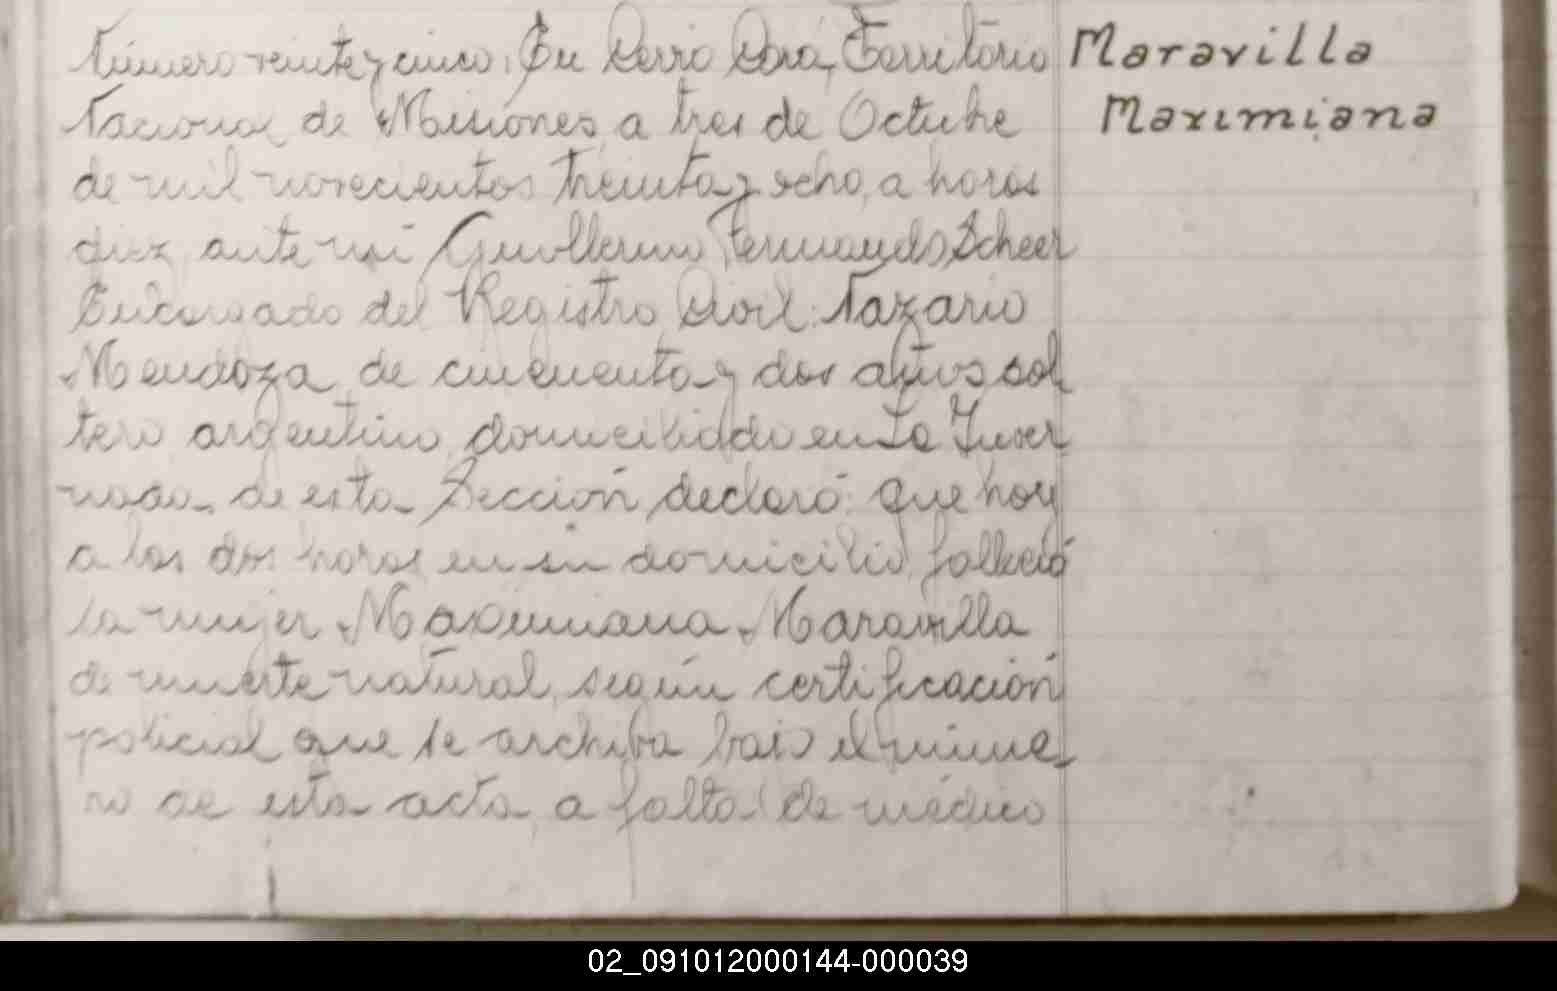 Número veinte y cinco. En Cerro Corá, Territorio
Nacional de Misiones, a tres de Octubre
de mil novecientos treinta y ocho, a horas
diez ante mi Guillermo Fernando Scheer
Encargado del Registro Civil: Nazario
Mendoza de cincuenta y dos años sol
tero argentino domiciliado en La Inver
nada de esta Sección declaró: que hoy
a las dos horas en su domicilio falleció
la mujer Maximiana Maravilla
de muerte natural, según certificación
policial que se archiba bajo el núme-
ro de esta acta, a falta de médico
Maravilla
Maximiana
02_091012000144-000039